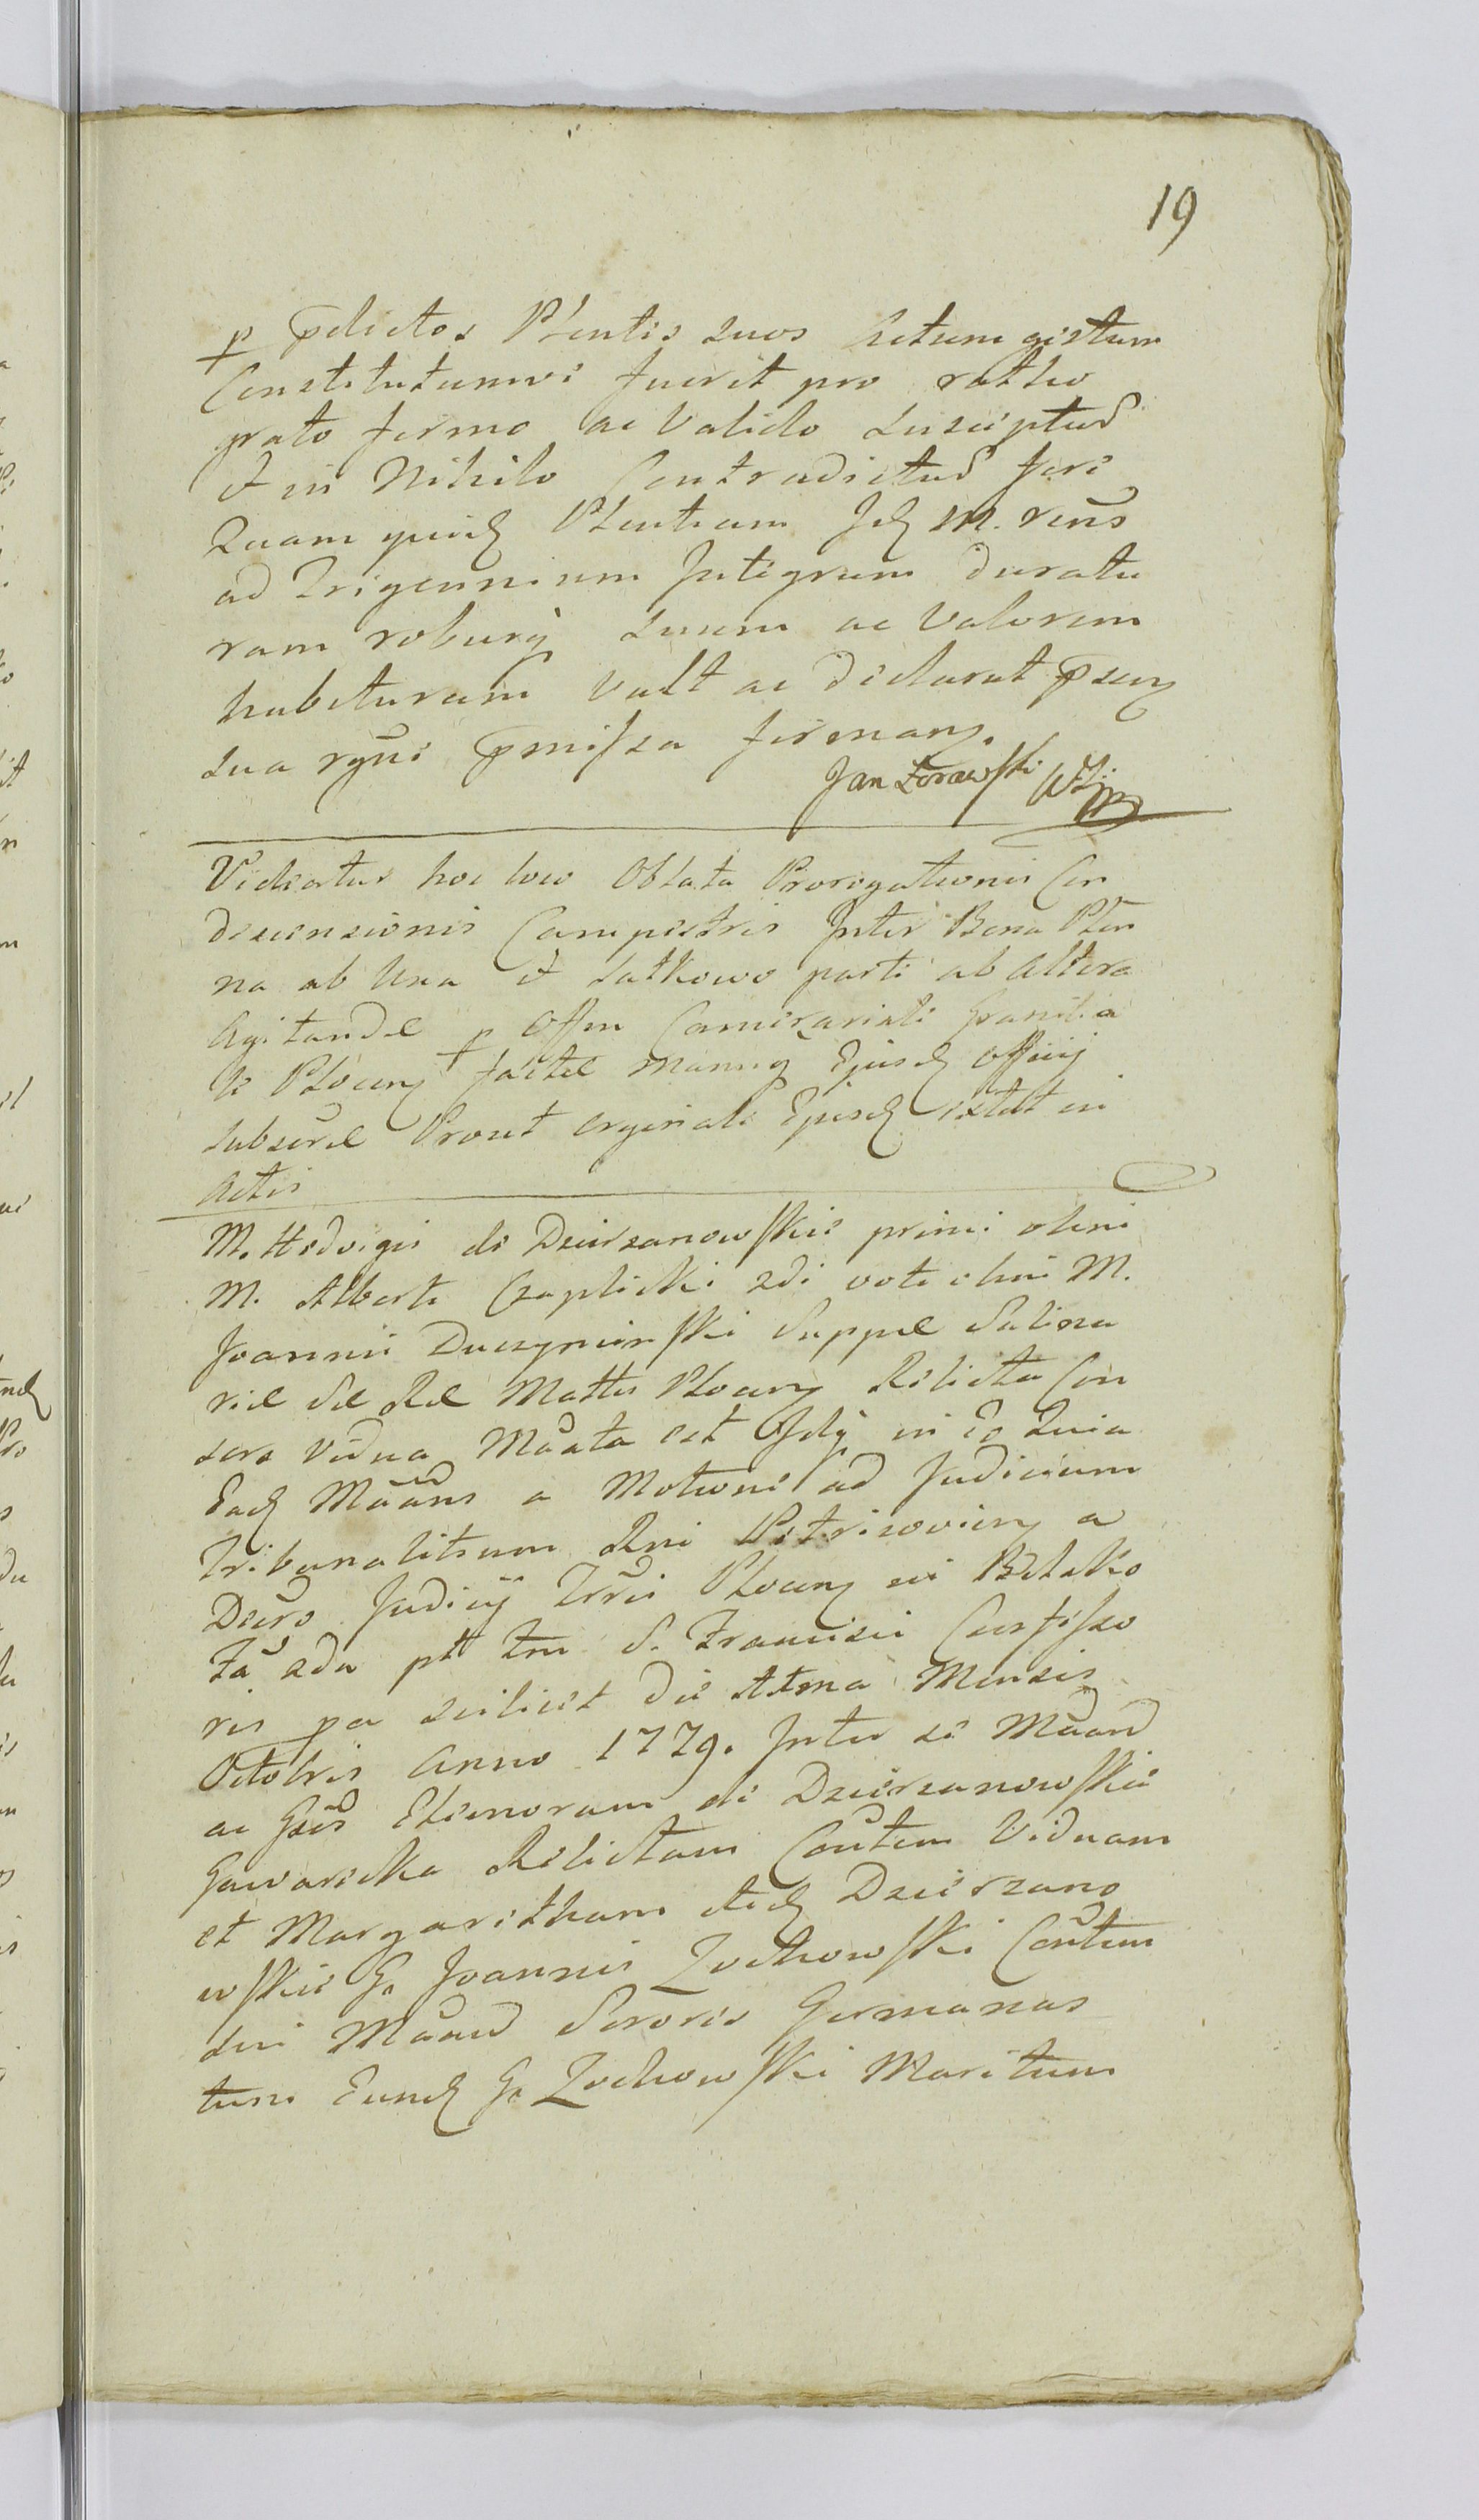 19
p pdictos Plentes suos actum gestum
Constitutumve fuerit pro ratho
grato firmo ac Valido Susceptud
et in Nihilo Contradictud fore
Quam quid Plentiam Jd M. rens
ad Trigennium Integrum duratu
ram roburq suum ac Valorem
habituram Vult ac declarat pseng
Sua rgni pmissa firmang.
Jan Zorawski
Videatur hoc loco Oblata Prorogationis Con
descensionis Campestris Inter Bona
na ab Una et Satkowo parti ab Altera
Agitandæ p Offm Camerariale Graniti a
le Plocen factæ manuq Ejusd Officij
Subscræ Prout originale Ejusd extat in
Actis
M. Hedvigis de Dzierzanowskie primi olim
M. Alberti Czaplicki 2di voti olim M.
Joannis Duczyminski Suppæ Salina
riæ Sæ Ræ Mattis Plocen Relicta Con
sors Vidua Maata est Jdq in Eo Quia
Ead Maans a Motione ad Judicium
Tribunalitium Rni Petricovien a
Decro Judicij Trris Plocen in Bielsko
Fa 2da pt tm S. Francisci Confesso
ris pa scilicet die Atma Mensis
Octobris Anno 1779. Inter se Maand
ac Gsas Eleonoram de Dzierzanowskie
Gawarecka Relictam Contem Viduam
et Margaritham itid Dzierzano
wskie G. Joannis Zochowski Contem
sui Maand Sorores Germanas
tum Eund G. Zochowski Maritum